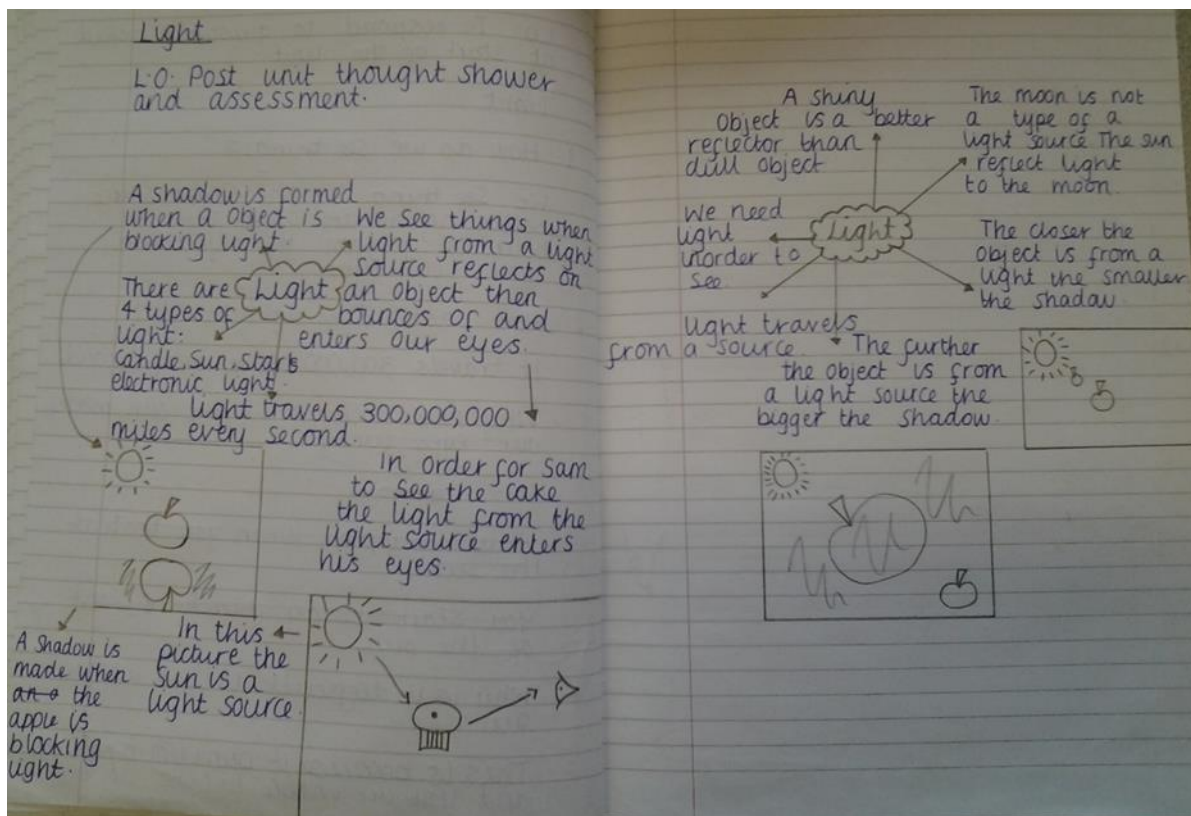 Light
L.O. Post unit thought shower
and assessment.
A shadow is formed
when a object is
blocking light.
We see things when
light from a light
source reflects on
an object then
bounces of and
enters our eyes.
Light
There are
4 types of
light:
candle, sun, stars
electronic light.
light travels 300,000,000
miles every second.
In order for sam
to see the cake
the light from the
light source enters
his eyes.
In this
picture the
sun is a
light source.
A shadow is
made when
an o the
apple is
blocking
light.
A shiny
object is a better
reflector than
dull object
The moon is not
a type of a
light source The sun
reflect light
to the moon.
We need
light
inorder to
see.
Light
The closer the
object is from a
light the smaller
the shadow.
light travels
from a source.
The further
the object is from
a light source the
bigger the shadow.